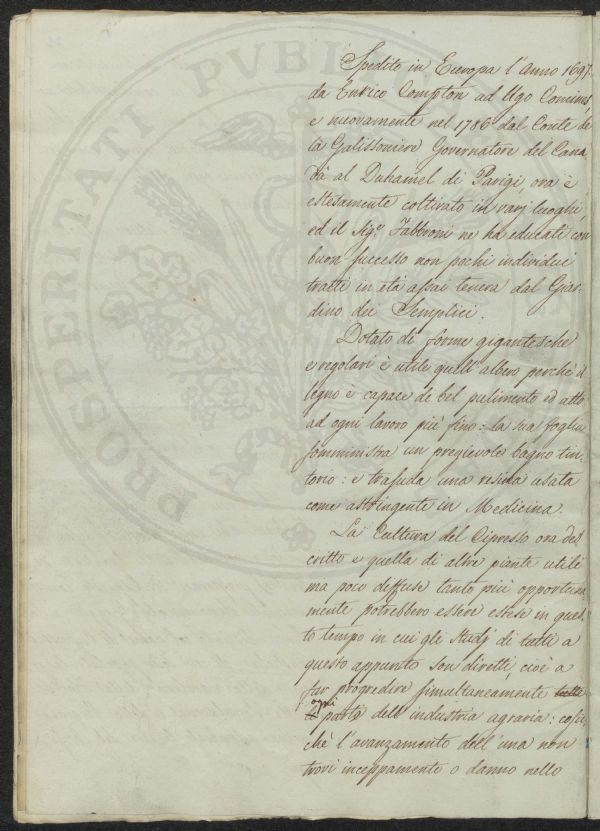 Spedito in Europa l'Anno 1697.
da Enrico Compton ad Ugo Comins,
e nuovamente nel 1786 dal Conte de
la Galissoniere Governatore del Cana
dà al Duhamel di Parigi, ora è
estesamente coltivato in varj luoghi,
ed il Sig.r Fabbroni ne ha educati con
buon successo non pochi individui
tratti in età assai tenera dal Giar-
dino dei Semplici.
Dotato di forme gigantesche
e regolari è utile quest'albero perchè il
legno è capace di bel pulimento ed atto
ad ogni lavoro più fino: la sua foglia
somministra un pregievole bagno tin-
torio: e trasuda una resina usata
come astringente in Medicina.
La Cultura del Cipresso ora des
critto e quella di altre piante utili
ma poco diffuse tanto più opportuna
mente potrebbero essere estese in ques-
to tempo in cui gli Studj di tutti a
questo appunto son diretti, cioè a
far progredire simultaneamente tutte
ogni
le parte dell'industria agraria: cosic
chè l'avanzamento dell'una non
trovi inceppamento o danno nello
PROSPERITATI PUBLICAE